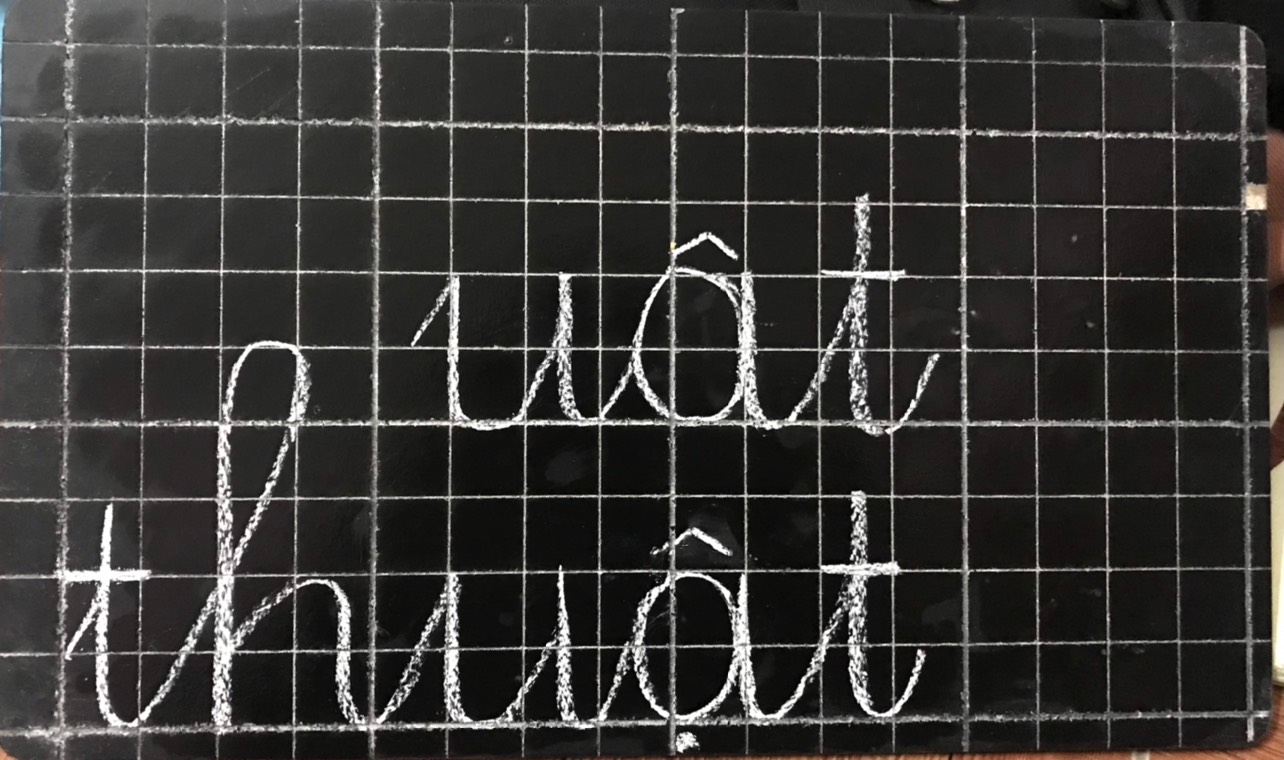 uât
thuật